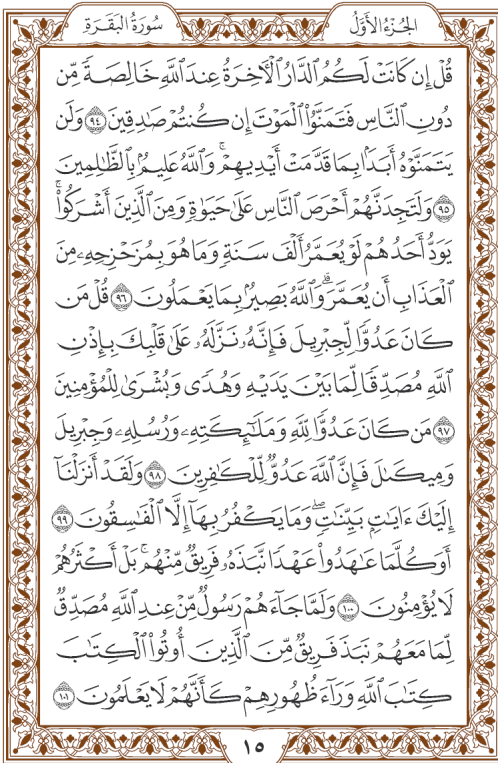 الجُزءُ الأَوَّلُ
سُورَةُ البَقَرَةِ
قُلْ إِن كَانَتْ لَكُمُ الدَّارُ الْآخِرَةُ عِندَ اللَّهِ خَالِصَةً مِّن
دُونِ النَّاسِ فَتَمَنَّوُا الْمَوْتَ إِن كُنتُمْ صَادِقِينَ ۝٩٤ وَلَن
يَتَمَنَّوْهُ أَبَدًا بِمَا قَدَّمَتْ أَيْدِيهِمْ ۗ وَاللَّهُ عَلِيمٌ بِالظَّالِمِينَ
۝٩٥ وَلَتَجِدَنَّهُمْ أَحْرَصَ النَّاسِ عَلَىٰ حَيَوٰةٍ وَمِنَ الَّذِينَ أَشْرَكُوا ۚ
يَوَدُّ أَحَدُهُمْ لَوْ يُعَمَّرُ أَلْفَ سَنَةٍ وَمَا هُوَ بِمُزَحْزِحِهِۦ مِنَ
الْعَذَابِ أَن يُعَمَّرَ ۗ وَاللَّهُ بَصِيرٌ بِمَا يَعْمَلُونَ ۝٩٦ قُلْ مَن
كَانَ عَدُوًّا لِّجِبْرِيلَ فَإِنَّهُۥ نَزَّلَهُۥ عَلَىٰ قَلْبِكَ بِإِذْنِ
اللَّهِ مُصَدِّقًا لِّمَا بَيْنَ يَدَيْهِ وَهُدًى وَبُشْرَىٰ لِلْمُؤْمِنِينَ
۝٩٧ مَن كَانَ عَدُوًّا لِّلَّهِ وَمَلَٰٓئِكَتِهِۦ وَرُسُلِهِۦ وَجِبْرِيلَ
وَمِيكَىٰلَ فَإِنَّ اللَّهَ عَدُوٌّ لِّلْكَافِرِينَ ۝٩٨ وَلَقَدْ أَنزَلْنَآ
إِلَيْكَ ءَايَاتٍ بَيِّنَاتٍ ۖ وَمَا يَكْفُرُ بِهَآ إِلَّا الْفَاسِقُونَ ۝٩٩
أَوَكُلَّمَا عَاهَدُوا عَهْدًا نَّبَذَهُۥ فَرِيقٌ مِّنْهُم ۚ بَلْ أَكْثَرُهُمْ
لَا يُؤْمِنُونَ ۝١٠٠ وَلَمَّا جَآءَهُمْ رَسُولٌ مِّنْ عِندِ اللَّهِ مُصَدِّقٌ
لِّمَا مَعَهُمْ نَبَذَ فَرِيقٌ مِّنَ الَّذِينَ أُوتُوا الْكِتَابَ
كِتَابَ اللَّهِ وَرَآءَ ظُهُورِهِمْ كَأَنَّهُمْ لَا يَعْلَمُونَ ۝١٠١
١٥